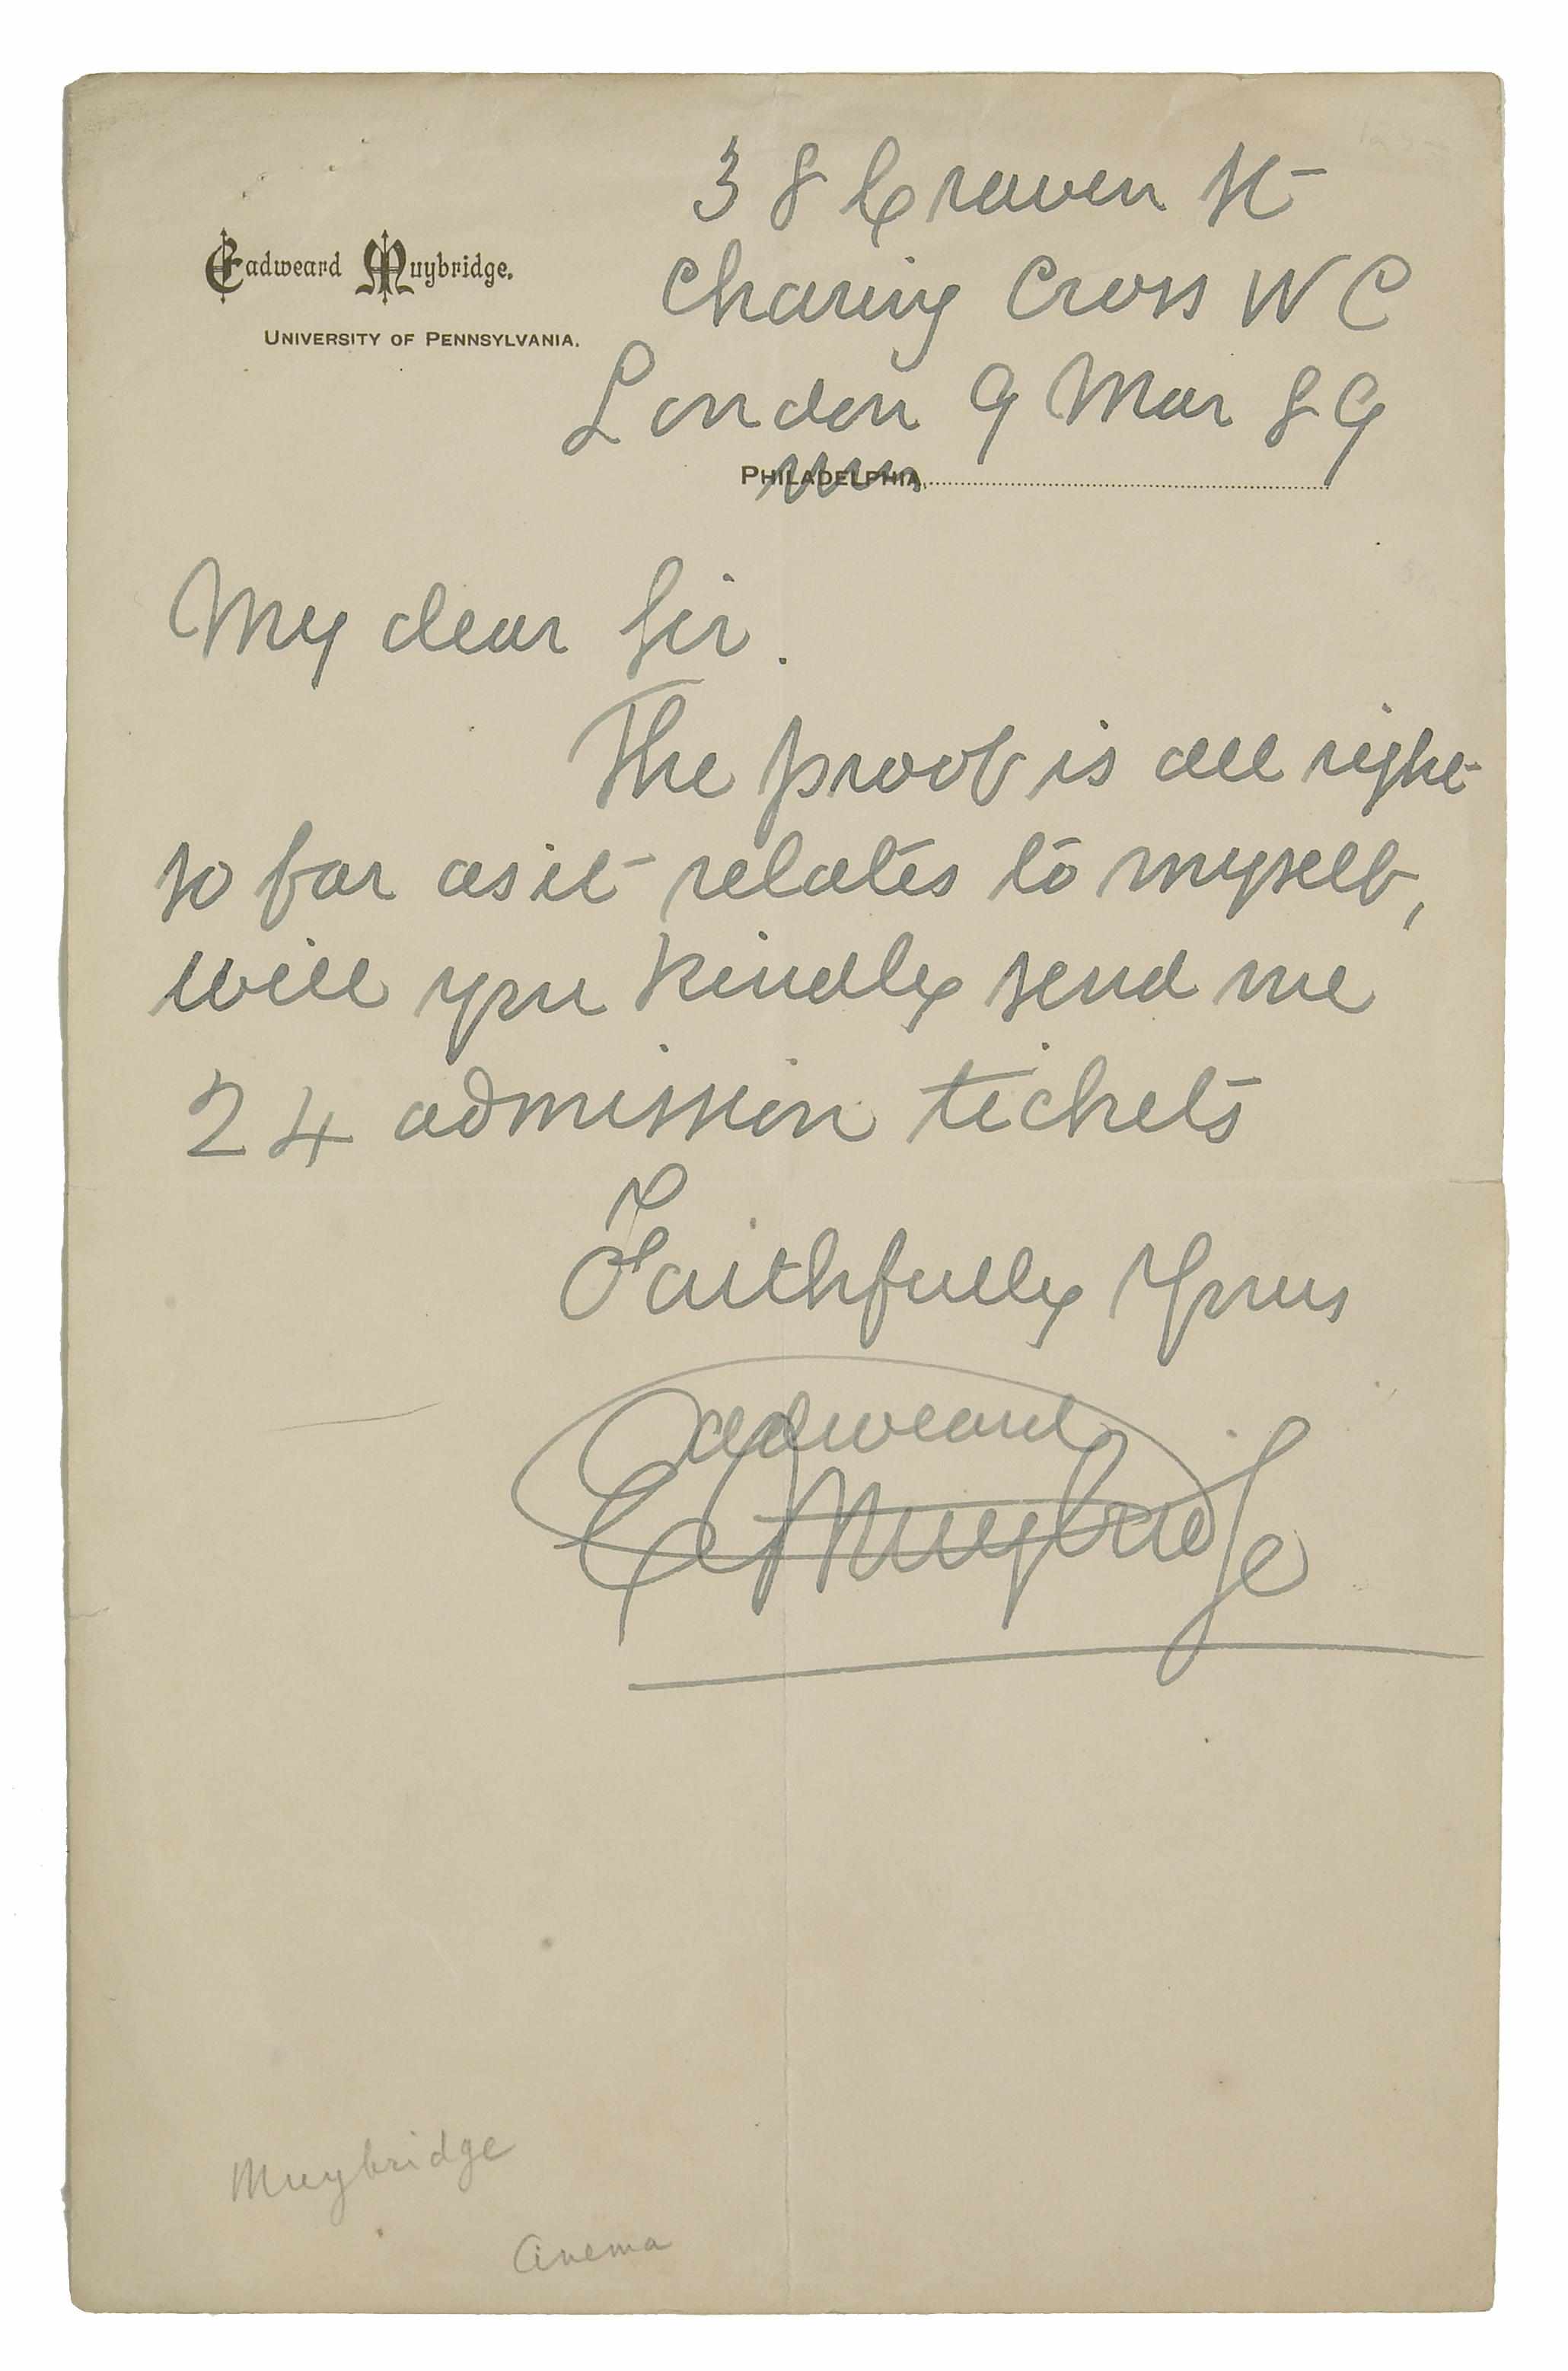 38 Craven St
Eadweard Muybridge.
Charing Cross W C
UNIVERSITY OF PENNSYLVANIA.
London 9 Mar 89
PHILADELPHIA,
My dear Sir.
The proof is all right
so far as it relates to myself,
will you kindly send me
24 admission tickets
Faithfully Yours
Eadweard
Muybridge
Muybridge
Cinema